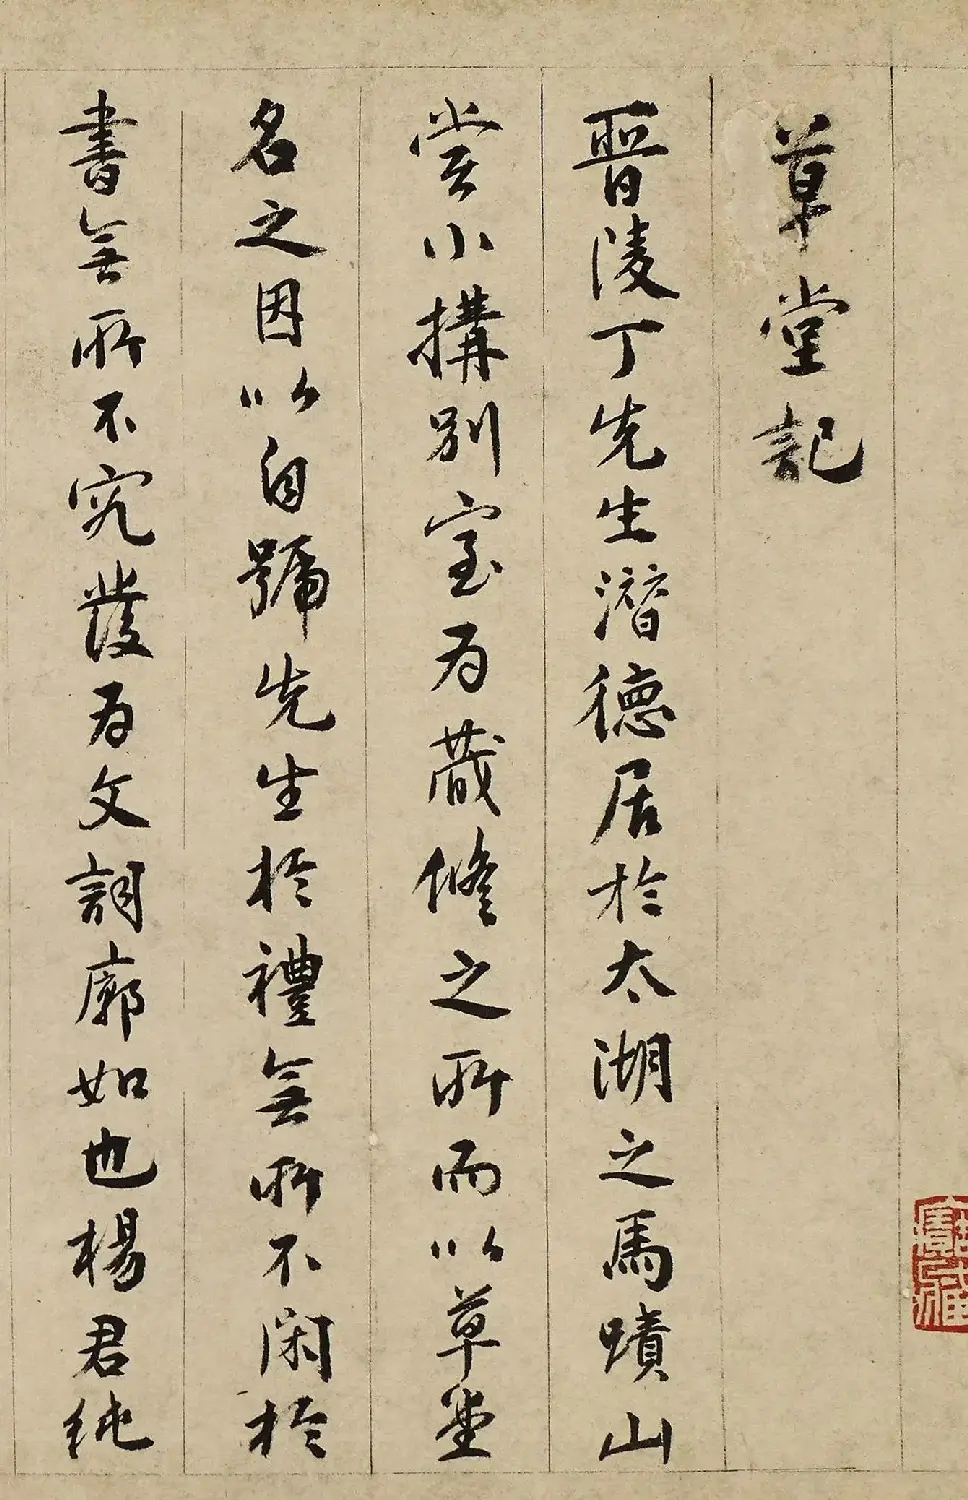 草堂記
晉陵丁先生潛德居於太湖之馬蹟山
嘗小構別室為藏脩之所而以草堂
名之因以自號先生於禮無所不閑於
書無所不究發為文詞廓如也楊君純